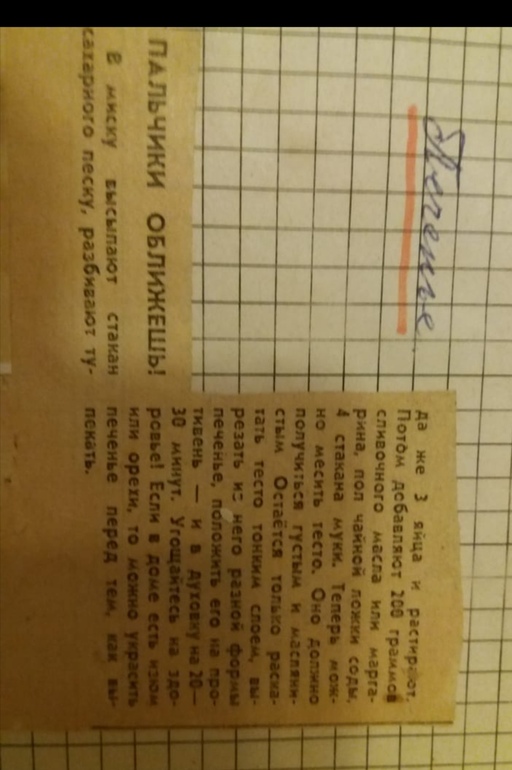 Печенье
ПАЛЬЧИКИ ОБЛИЖЕШЬ!
В миску высыпают стакан
сахарного песку, разбивают ту-
да же 3 яйца и растирают.
Потом добавляют 200 граммов
сливочного масла или марга-
рина, пол чайной ложки соды,
4 стакана муки. Теперь мож-
но месить тесто. Оно должно
получиться густым и масляни-
стым Остаётся только раска-
тать тесто тонким слоем, вы-
резать из него разной формы
печенье, положить его на про-
тивень — и в духовку на 20—
30 минут. Угощайтесь на здо-
ровье! Если в доме есть изюм
или орехи, то можно украсить
печенье перед тем, как вы-
пекать.